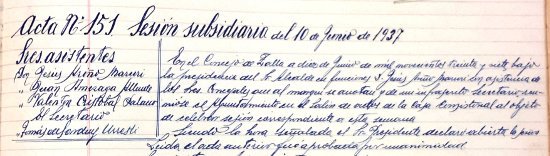 Acta Nº 151 Sesión subsidiaria del 10 de Junio de 1937
Sres. asistentes
Don Jesús Ariño
" Juan Amézaga Allende
" Valentín Cristóbal
El Secretario
Tomás de Urresti
En el Concejo de a diez de Junio de mil novecientos treinta y siete bajo
la presidencia del Sr. Alcalde en funciones D. Jesús Ariño con asistencia de
los Sres. Concejales que al margen se anotan y de mi infrascrito Secretario se
reunió el Ayuntamiento en el Salón de actos de la Casa Consistorial al objeto
de celebrar sesión correspondiente a esta semana
Siendo la hora señalada el Sr. Presidente declaró abierta la
Leída el acta anterior fué aprobada por unanimidad